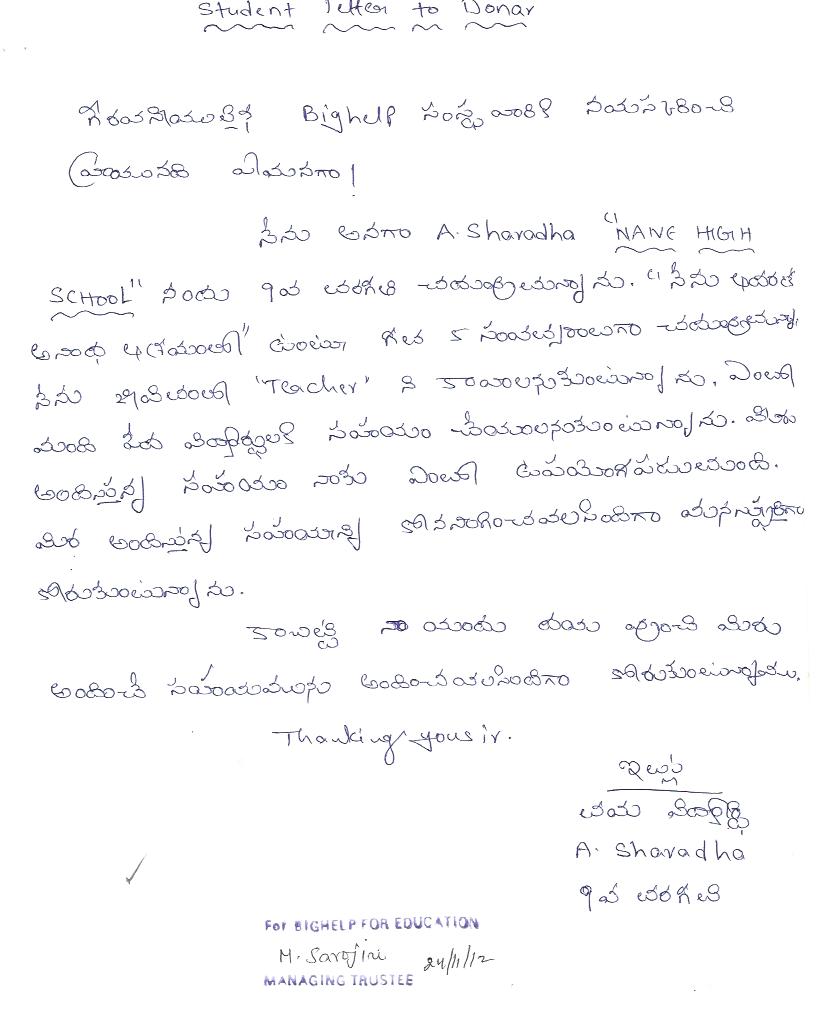 Student letter to Donar
గౌరవనీయులైన Bighelp సంస్థ వారికి నమస్కరించి
వ్రాయునది ఏమనగా!
నేను అనగా A. Sharadha "NANE HIGH
SCHOOL" నందు 9వ తరగతి చదువుతున్నాను. "నేను భారత
ఉంటూ, గత 5 సంవత్సరాలుగా చదువుతున్నా
నేను జీవితంలో 'Teacher' ని కావాలనుకుంటున్నాను. ఎంతో
మంది పేద విద్యార్థులకి సహయం చేయాలనుకుంటున్నాను. మీరు
అందిస్తున్న సహయం నాకు ఎంతో ఉపయోగపడుతుంది.
మీరు అందిస్తున్న సహయాన్ని కొనసాగించవలసిందిగా మనస్ఫూర్తిగా
కోరుకుంటున్నాను.
కాబట్టి నా యందు దయ వుంచి మీరు
అందించే సహయమును అందించవలసిందిగా కోరుకుంటున్నాము.
Thanking yousir.
ఇట్లు
తమ విద్యార్థి
A. Sharadha
9వ తరగతి
For BIGHELP FOR EDUCATION
M. Sarojini 24/11/12
MANAGING TRUSTEE